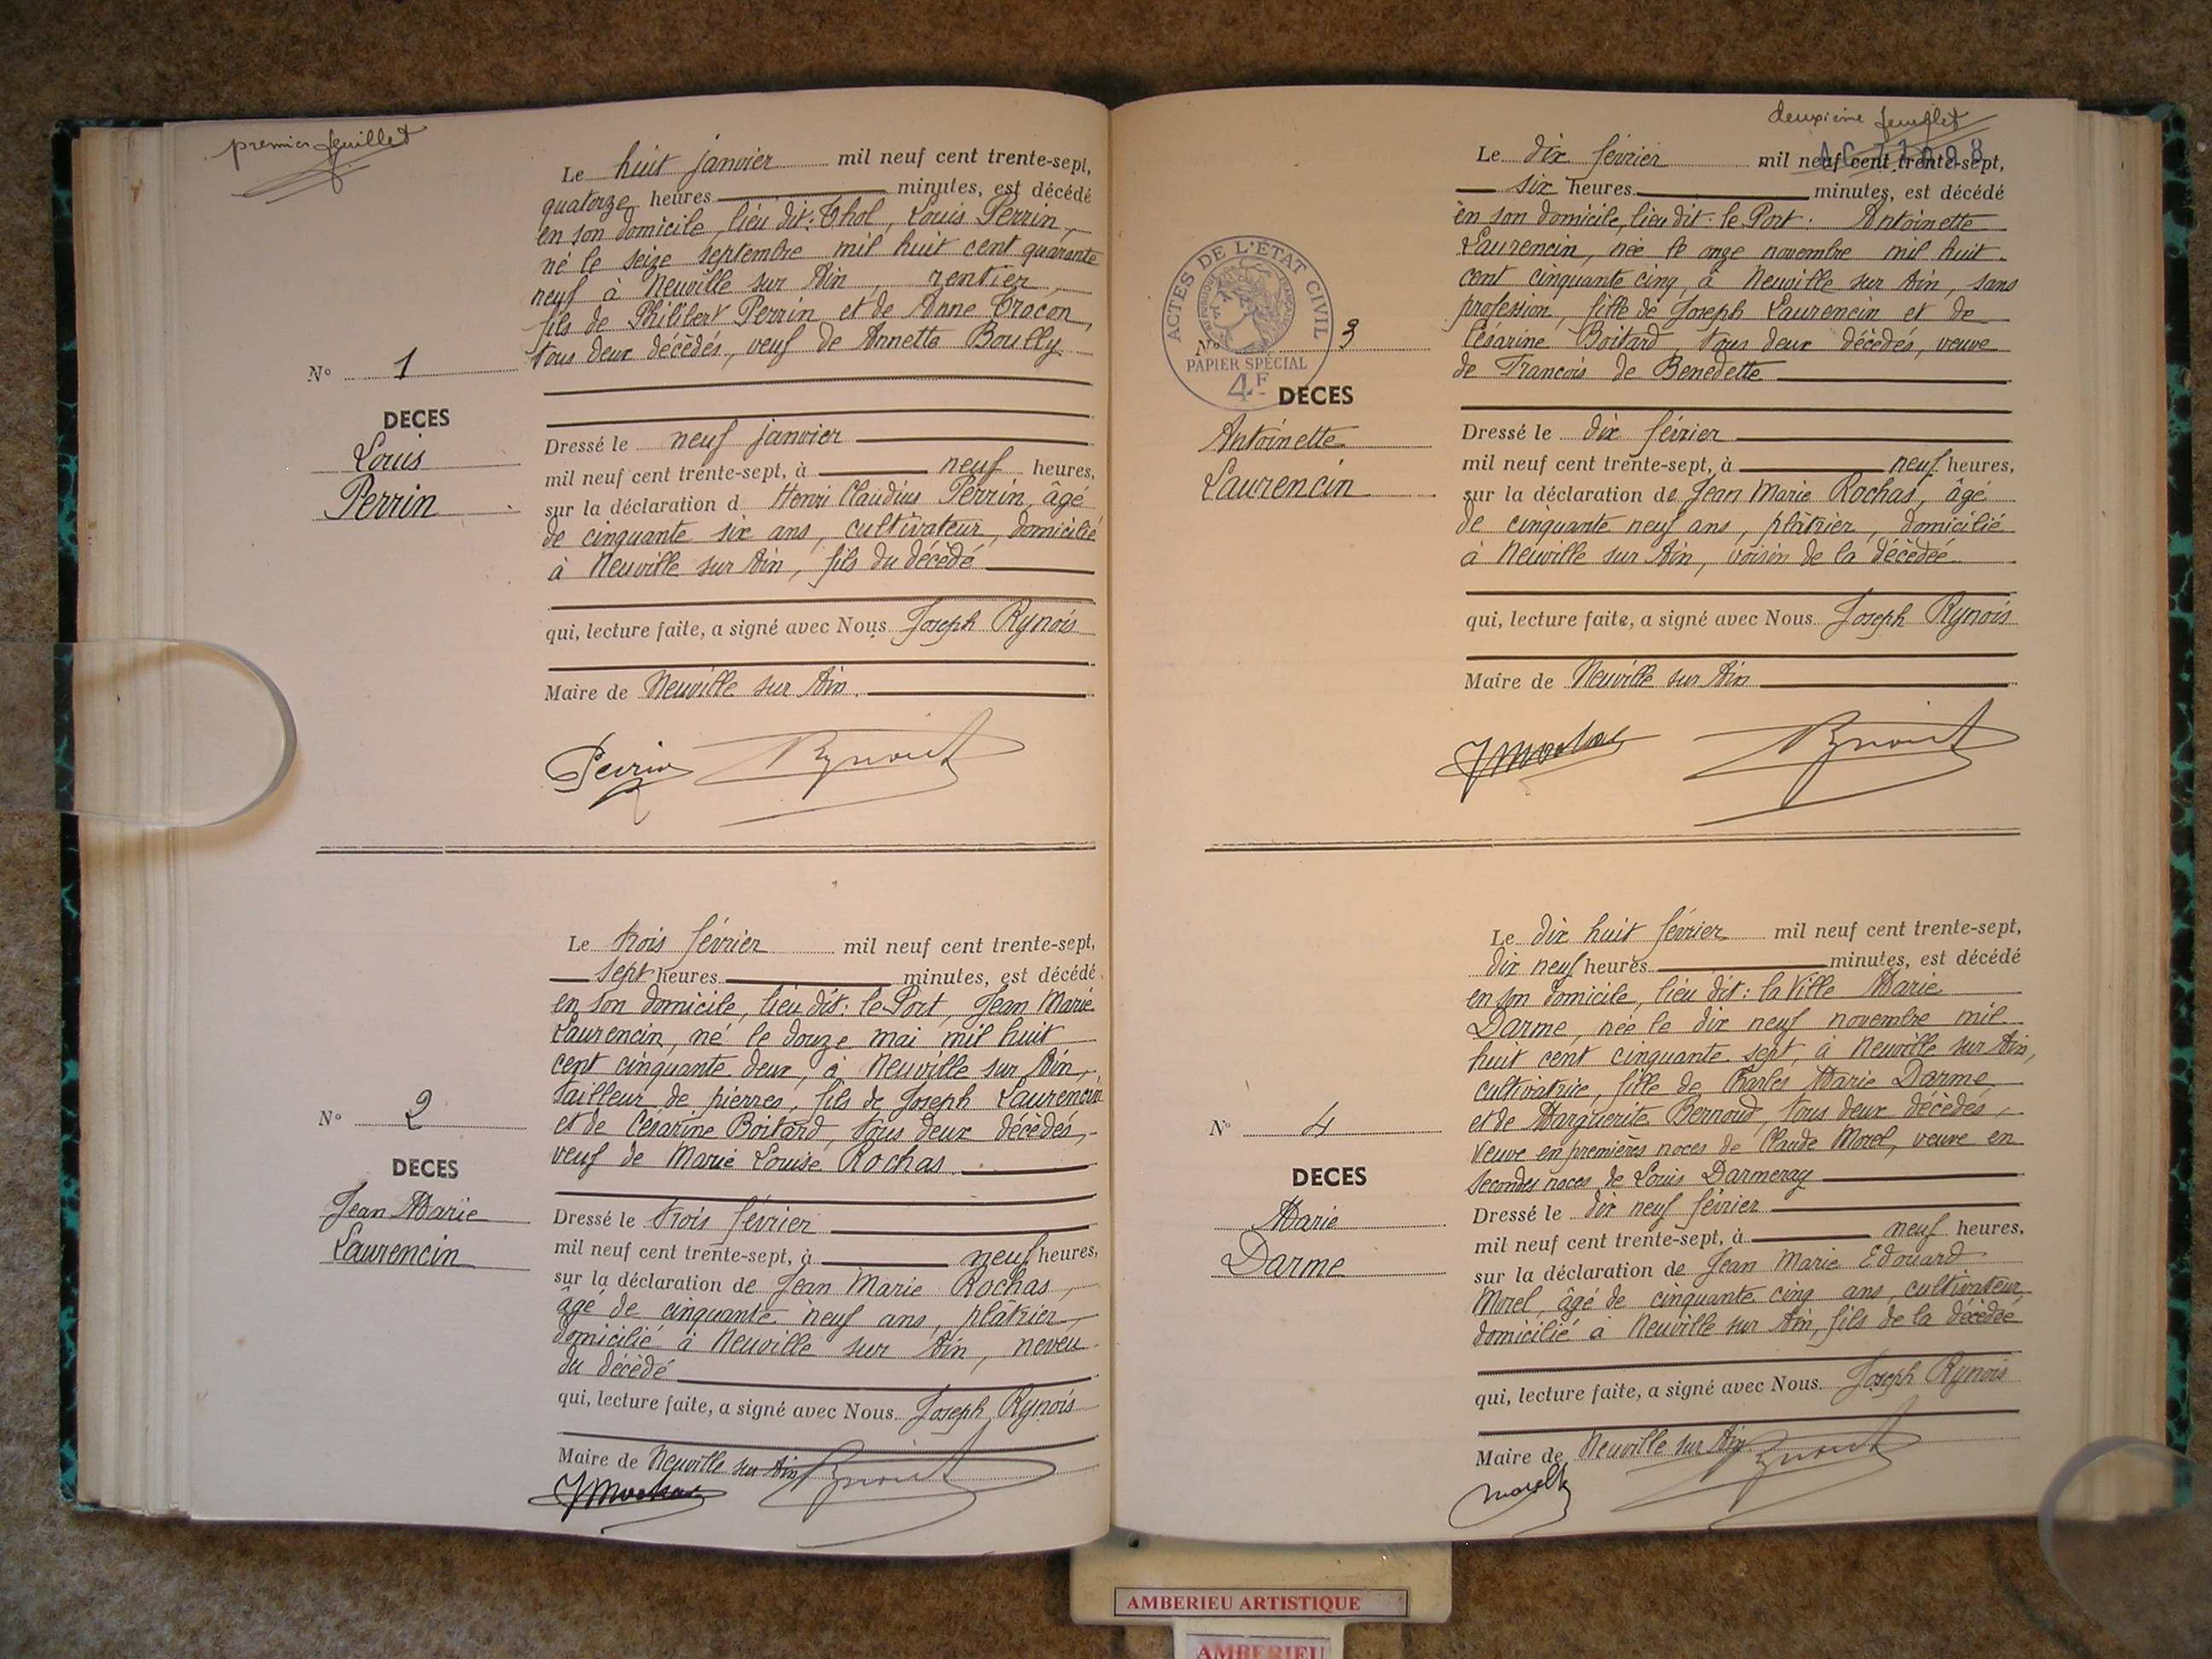 premier feuillet
Le huit janvier mil neuf cent trente-sept,
quatorze heures minutes, est décédé
en son domicile, lieu dit: Thol, Louis Perrin,
né le seize septembre mil huit cent quarante
neuf à Neuville sur Ain, rentier,
fils de Philibert Perrin et de Anne Tracon,
tous deux décédés, veuf de Annette Boully
N° 1
DECES
Louis
Perrin
Dressé le neuf janvier
mil neuf cent trente-sept, à neuf heures,
sur la déclaration d Henri Claudius Perrin, âgé
de cinquante six ans, cultivateur, domicilié
à Neuville sur Ain, fils du décédé
qui, lecture faite, a signé avec Nous Joseph Rynois
Maire de Neuville sur Ain.
Perrin
Le trois février mil neuf cent trente-sept,
sept heures minutes, est décédé
en son domicile, lieu dit: le Port, Jean Marie
Laurencin, né le douze mai mil huit
cent cinquante deux, à Neuville sur Ain,
tailleur de pierres, fils de Joseph Laurencin
et de Césarine Boitard, tous deux décédés,
veuf de Marie Louise Rochas
N° 2
DECES
Jean Marie
Laurencin
Dressé le trois février
mil neuf cent trente-sept, à neuf heures,
sur la déclaration de Jean Marie Rochas,
âgé de cinquante neuf ans, plâtrier,
domicilié à Neuville sur Ain, neveu
du décédé
qui, lecture faite, a signé avec Nous Joseph Rynois
Maire de Neuville sur Ain
deuxième feuillet
Le dix février mil neuf cent trente-sept,
six heures minutes, est décédé
en son domicile, lieu dit: le Port: Antoinette
Laurencin, née le onze novembre mil huit
cent cinquante cinq, à Neuville sur Ain, sans
profession, fille de Joseph Laurencin et de
Césarine Boitard, tous deux décédés, veuve
de François de Benedette
ACTES DE L'ETAT CIVIL
REPUBLIQUE FRANÇAISE
PAPIER SPÉCIAL
4F
N° 3
DECES
Antoinette
Laurencin
Dressé le dix février
mil neuf cent trente-sept, à neuf heures,
sur la déclaration de Jean Marie Rochas, âgé
de cinquante neuf ans, plâtrier, domicilié
à Neuville sur Ain, voisin de la décédée
qui, lecture faite, a signé avec Nous Joseph Rynois
Maire de Neuville sur Ain
Le dix huit février mil neuf cent trente-sept,
dix neuf heures minutes, est décédé
en son domicile, lieu dit: la Ville Marie
Darme, née le dix neuf novembre mil
huit cent cinquante sept, à Neuville sur Ain,
cultivatrice, fille de Charles Marie Darme
et de Marguerite Bernoud, tous deux décédés,
veuve en premières noces de Claude Morel, veuve en
secondes noces de Louis Darmeray
N° 4
DECES
Marie
Darme
Dressé le dix neuf février
mil neuf cent trente-sept, à neuf heures,
sur la déclaration de Jean Marie Edouard
Morel, âgé de cinquante cinq ans, cultivateur
domicilié à Neuville sur Ain, fils de la décédée
qui, lecture faite, a signé avec Nous Joseph Rynois
Maire de Neuville sur Ain
AMBERIEU ARTISTIQUE
AMBERIEU